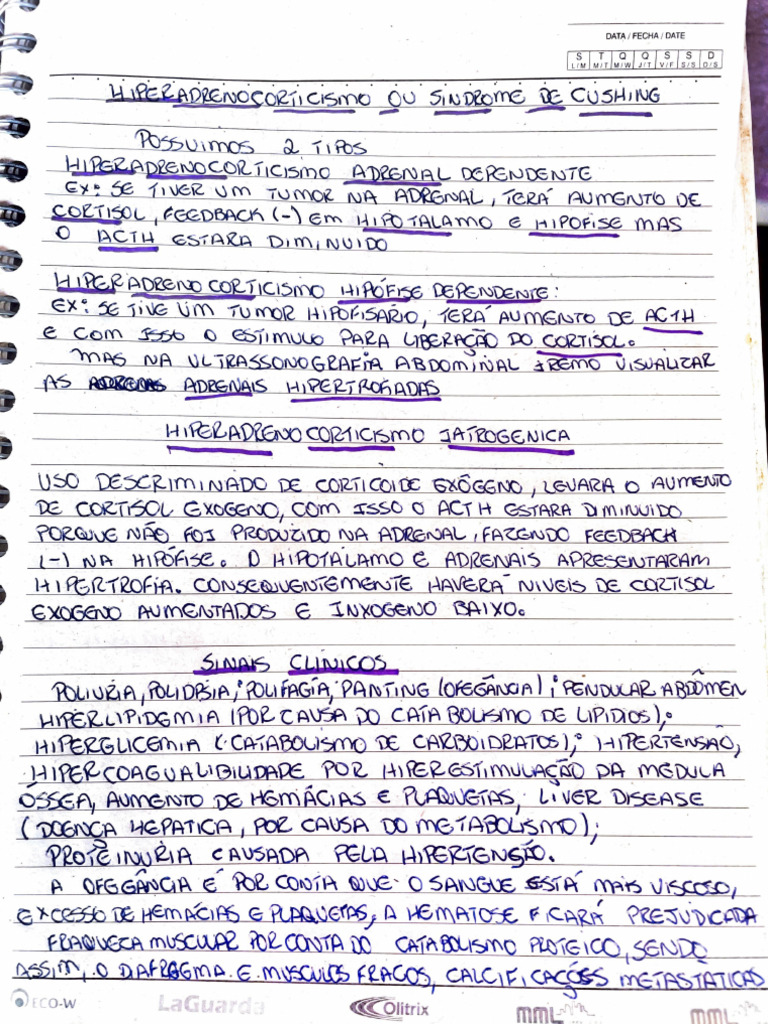 DATA / FECHA / DATE
S T Q Q S S D
L/M M/T M/W J/T V/F S/S D/S
HIPERADRENOCORTICISMO OU SÍNDROME DE CUSHING
POSSUIMOS 2 TIPOS
HIPERADRENOCORTICISMO ADRENAL DEPENDENTE
EX: SE TIVER UM TUMOR NA ADRENAL, TERÁ AUMENTO DE
CORTISOL, FEEDBACK (-) EM HIPOTALAMO E HIPOFISE MAS
O ACTH ESTARA DIMINUIDO
HIPERADRENOCORTICISMO HIPÓFISE DEPENDENTE:
EX: SE TIVE UM TUMOR HIPOFISARIO, TERÁ AUMENTO DE ACTH
E COM ISSO O ESTIMULO PARA LIBERAÇÃO DO CORTISOL.
MAS NA ULTRASSONOGRAFIA ABDOMINAL IREMO VISUALIZAR
AS ADRENAIS HIPERTROFIADAS
HIPERADRENOCORTICISMO IATROGENICA
USO DESCRIMINADO DE CORTICOIDE EXÓGENO, LEVARA O AUMENTO
DE CORTISOL EXOGENO, COM ISSO O ACTH ESTARA DIMINUIDO
PORQUE NÃO FOI PRODUZIDO NA ADRENAL, FAZENDO FEEDBACK
(-) NA HIPÓFISE. O HIPOTÁLAMO E ADRENAIS APRESENTARAM
HIPERTROFIA. CONSEQUENTEMENTE HAVERÁ NIVEIS DE CORTISOL
EXOGENO AUMENTADOS E INXOGENO BAIXO.
SINAIS CLÍNICOS
POLIURIA, POLIDPSIA; POLIFAGIA; PANTING (OFEGÂNCIA); PENDULAR ABDÔMEN
HIPERLIPIDEMIA (POR CAUSA DO CATABOLISMO DE LIPIDIOS);
HIPERGLICEMIA (CATABOLISMO DE CARBOIDRATOS); HIPERTENSÃO,
HIPERCOAGUALIBILIDADE POR HIPERESTIMULAÇÃO DA MEDULA
ÓSSEA, AUMENTO DE HEMÁCIAS E PLAQUETAS, LIVER DISEASE
(DOENÇA HEPATICA, POR CAUSA DO METABOLISMO);
PROTEINURIA CAUSADA PELA HIPERTENSÃO.
A OFEGÂNCIA É POR CONTA QUE O SANGUE ESTÁ MAIS VISCOSO,
EXCESSO DE HEMÁCIAS E PLAQUETAS, A HEMATOSE FICARÁ PREJUDICADA
FRAQUECA MUSCULAR POR CONTA DO CATABOLISMO PROTEICO, SENDO
ASSIM, O DIAFRAGMA E MUSCULOS FRACOS, CALCIFICAÇÕES METASTATICAS
ECO-W LaGuarda Olitrix MML MML